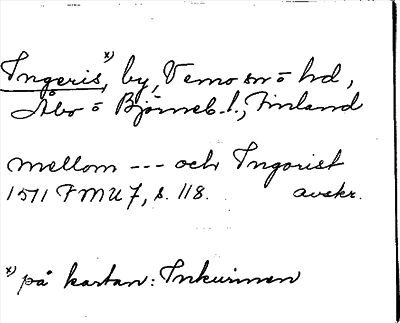 Ingeris *), by, Vemo sn o hd,
Åbo o Björneb. l., Finland
mellom --- och Ingorist
1511 FMU 7, s. 118. avskr.
*) på kartan: Inkurinen